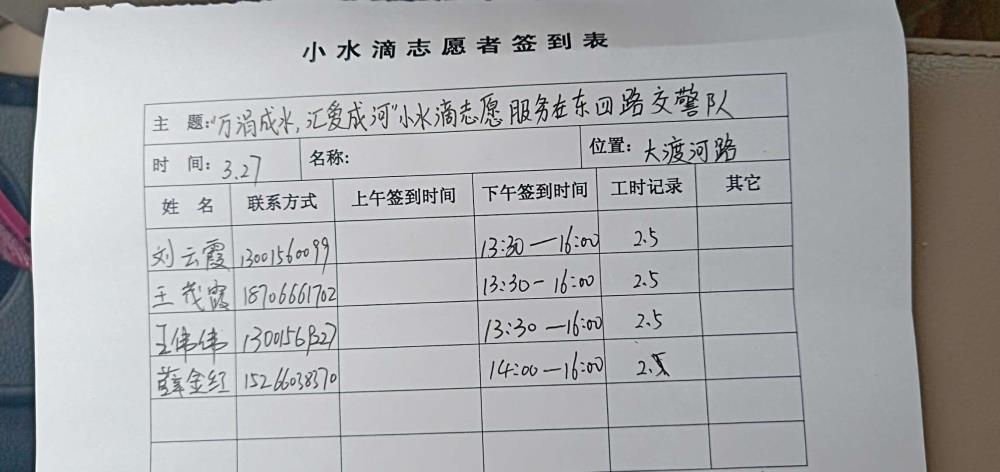 小水滴志愿者签到表
主 题:"万涓成水,汇爱成河"小水滴志愿服务在东四路交警队
时 间: 3.27 名称: 位置: 大渡河路
姓 名 联系方式 上午签到时间 下午签到时间 工时记录 其它
刘云霞 13001560099 13:30—16:00 2.5
王茂霞 18706661702 13:30-16:00 2.5
王伟伟 13:30—16:00 2.5
薛金红 15266038370 14:00—16:00